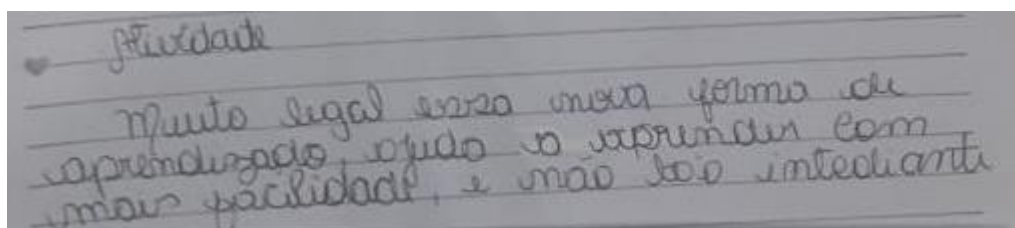 Atividade
Muito legal essa nova forma de
aprendizado, ajuda a aprender com
mais facilidade, e não tão intediante